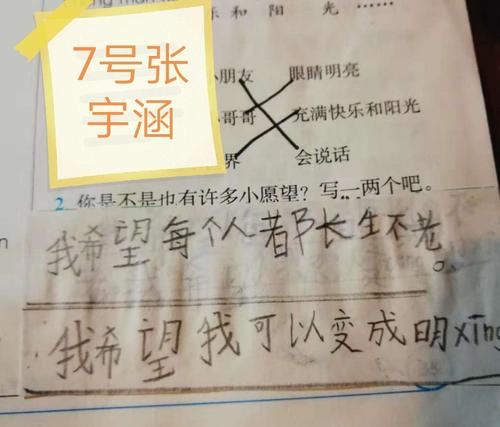 乐 和 阳 光 ……
7号张
宇涵
朋友 眼睛明亮
哥哥 充满快乐和阳光
界 会说话
2. 你是不是也有许多小愿望？写一两个吧。
我希望每个人都长生不老。
我希望我可以变成明xīng